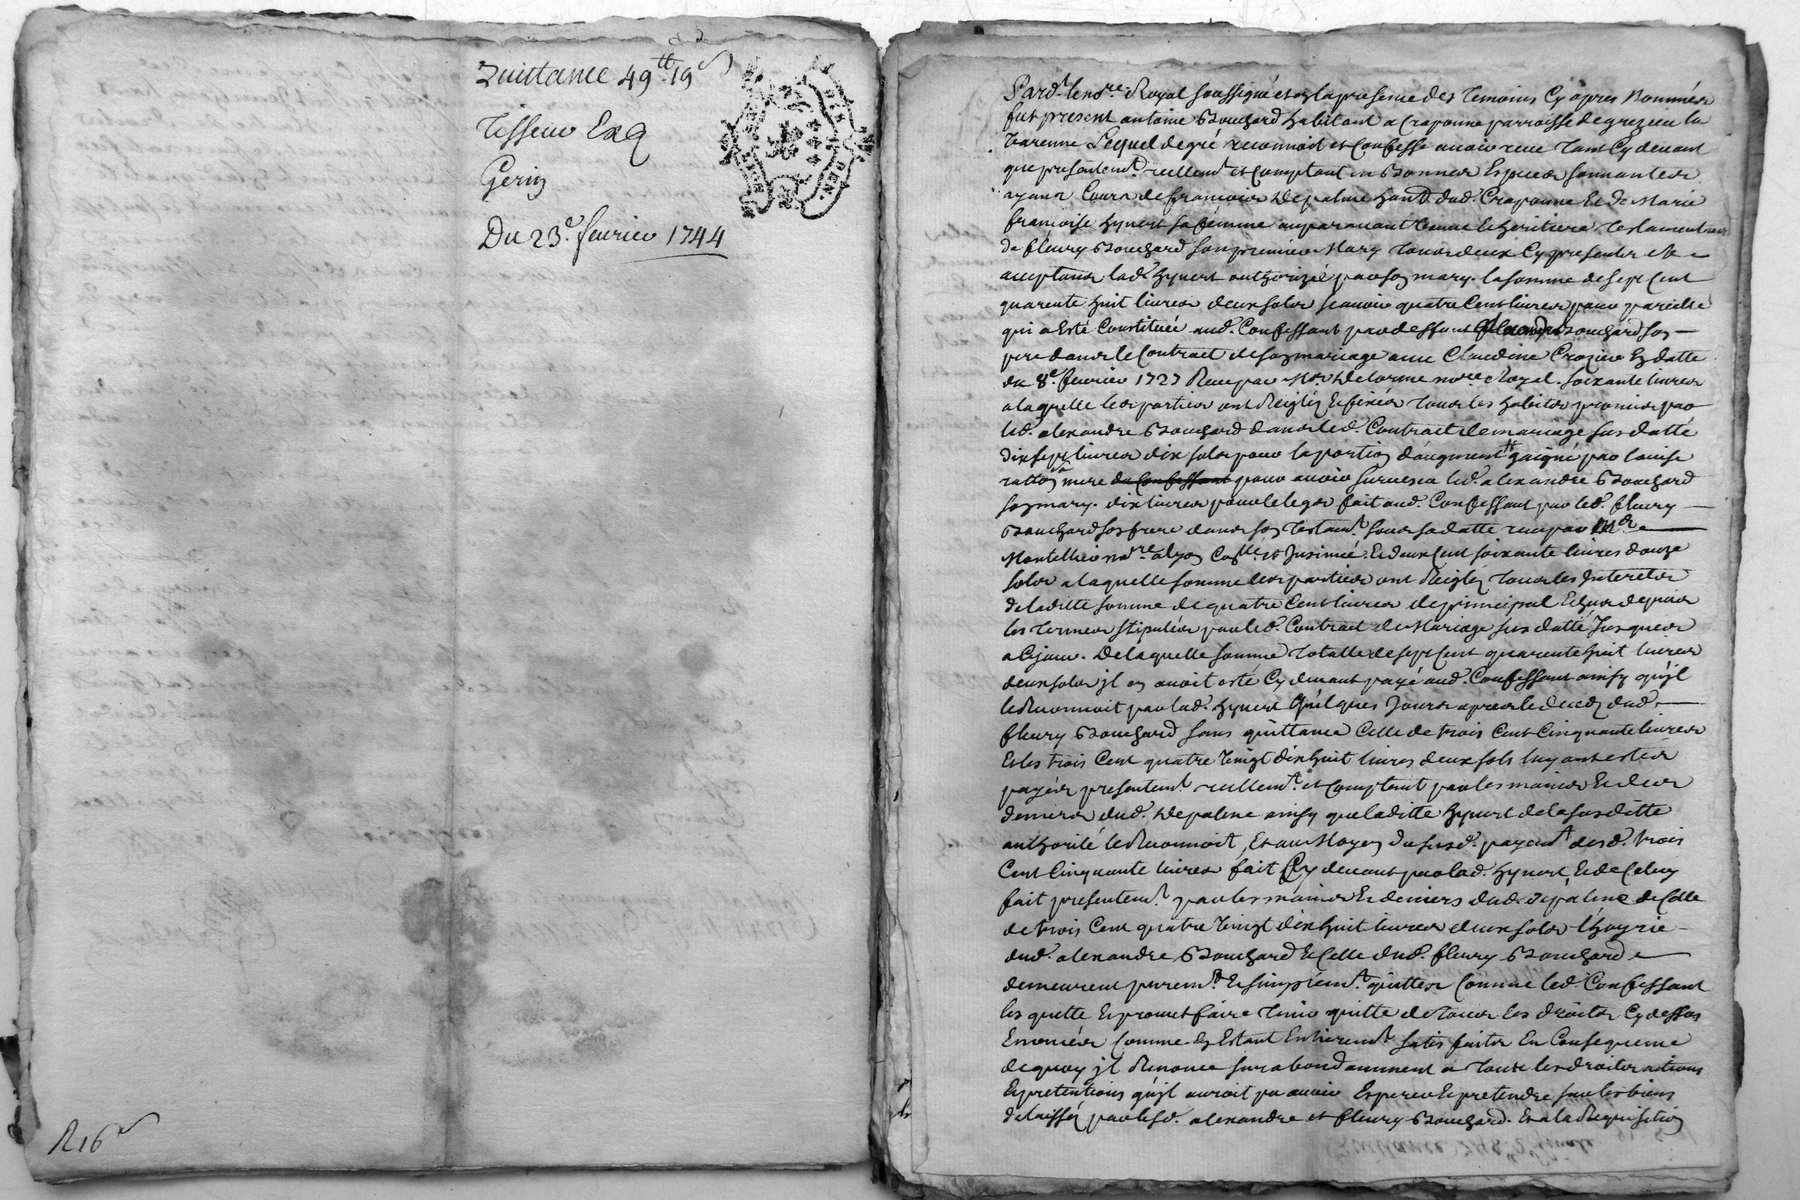 Quittance 49tt 19s
Tisseur Exq
Gerin
Du 23e. fevrier 1744
R 16s
Pard.t le no.re Royal soussigné et en la presence des temoins Cy apres Nommés
fut present antoine Bouchard habitant a Craponne parroisse de grezieu la
Varenne Lequel de gré reconnoit et Confesse avoir receu tant Cy devant
que presentem.t reellem.t et Comptant en Bonnes Especes sonnantes
ayant Cours de francois Depalme hant dud. Craponne Et de Marie
francoise hyvert sa femme auparavant veuve et heritiere testamentaire
de fleury Bouchard son premier Mary tous deux Cy presents et
acceptants lad.e hyvert authorizée par son mary. la somme de sept Cent
quarente huit livres deux sols scavoir quatre Cent livres pour pareille
qui a Esté Constituée aud. Confessant par deffunt alexandre Bouchard son
pere dans le Contract de son mariage avec Claudine Crozier En datte
du 8e. fevrier 1727 Receu par Me. Delorme no.re Royal. soixante livres
a laquelle les parties ont Reiglés Et fixés tous les habits promis par
led. alexandre Bouchard dans led. Contract de mariage sus datté
dix sept livres dix sols pour la portion d'augment gaigné par
mere du Confessant pour avoir survescu led. alexandre Bouchard
son mary. dix livres pour le legs fait aud. Confessant par led. fleury
Bouchard son frere dans son testam.t sous sa datte receu par Me.
no.re a lyon Con.llé et Insinué Et deux Cent soixante livres douze
sols a laquelle somme les parties ont Reiglés tous les Interets
de laditte somme de quatre Cent livres de principal Echus depuis
les termes stipulés par led. Contract de Mariage sus datté Jusques
a Ce jour. De laquelle somme totalle de sept Cent quarente huit livres
deux sols jl en avoit esté Cy devant payé aud. Confessant ainsy qu'jl
le Reconnoit par lad. hyvert quelques Jours apres le deceds dud.
fleury Bouchard sans quittance Celle de trois Cent Cinquante livres
Et les trois Cent quatre Vingt dix huit livres deux sols luy ont estés
payés presentem.t reellem.t et Comptant par les mains Et des
deniers dud. Depalme ainsy que laditte hyvert de la sus ditte
authorité le Reconnoit, Et au Moyen du susd. payem.t desd. trois
Cent Cinquante livres fait Cy devant par lad. hyvert Et de Celuy
fait presentem.t par les mains Et deniers dud. Depalme de Celle
de trois Cent quatre Vingt dix huit livres deux sols l'hoyrie
dud. alexandre Bouchard Et Celle dud. fleury Bouchard
demeurent purem.t Et simplem.t quittes Comme led. Confessant
les quitte Et promet faire tenir quitte de tous les droits Cy dessus
Enoncés Comme En Estant Entierem.t satisfaits En Consequence
de quoy jl Renonce surabondamment a tous les droits actions
Et pretentions qu'jl auroit pu avoir Esperer Et pretendre sur les biens
delaissés par lesd. alexandre et fleury Bouchard. Et a la Requisition